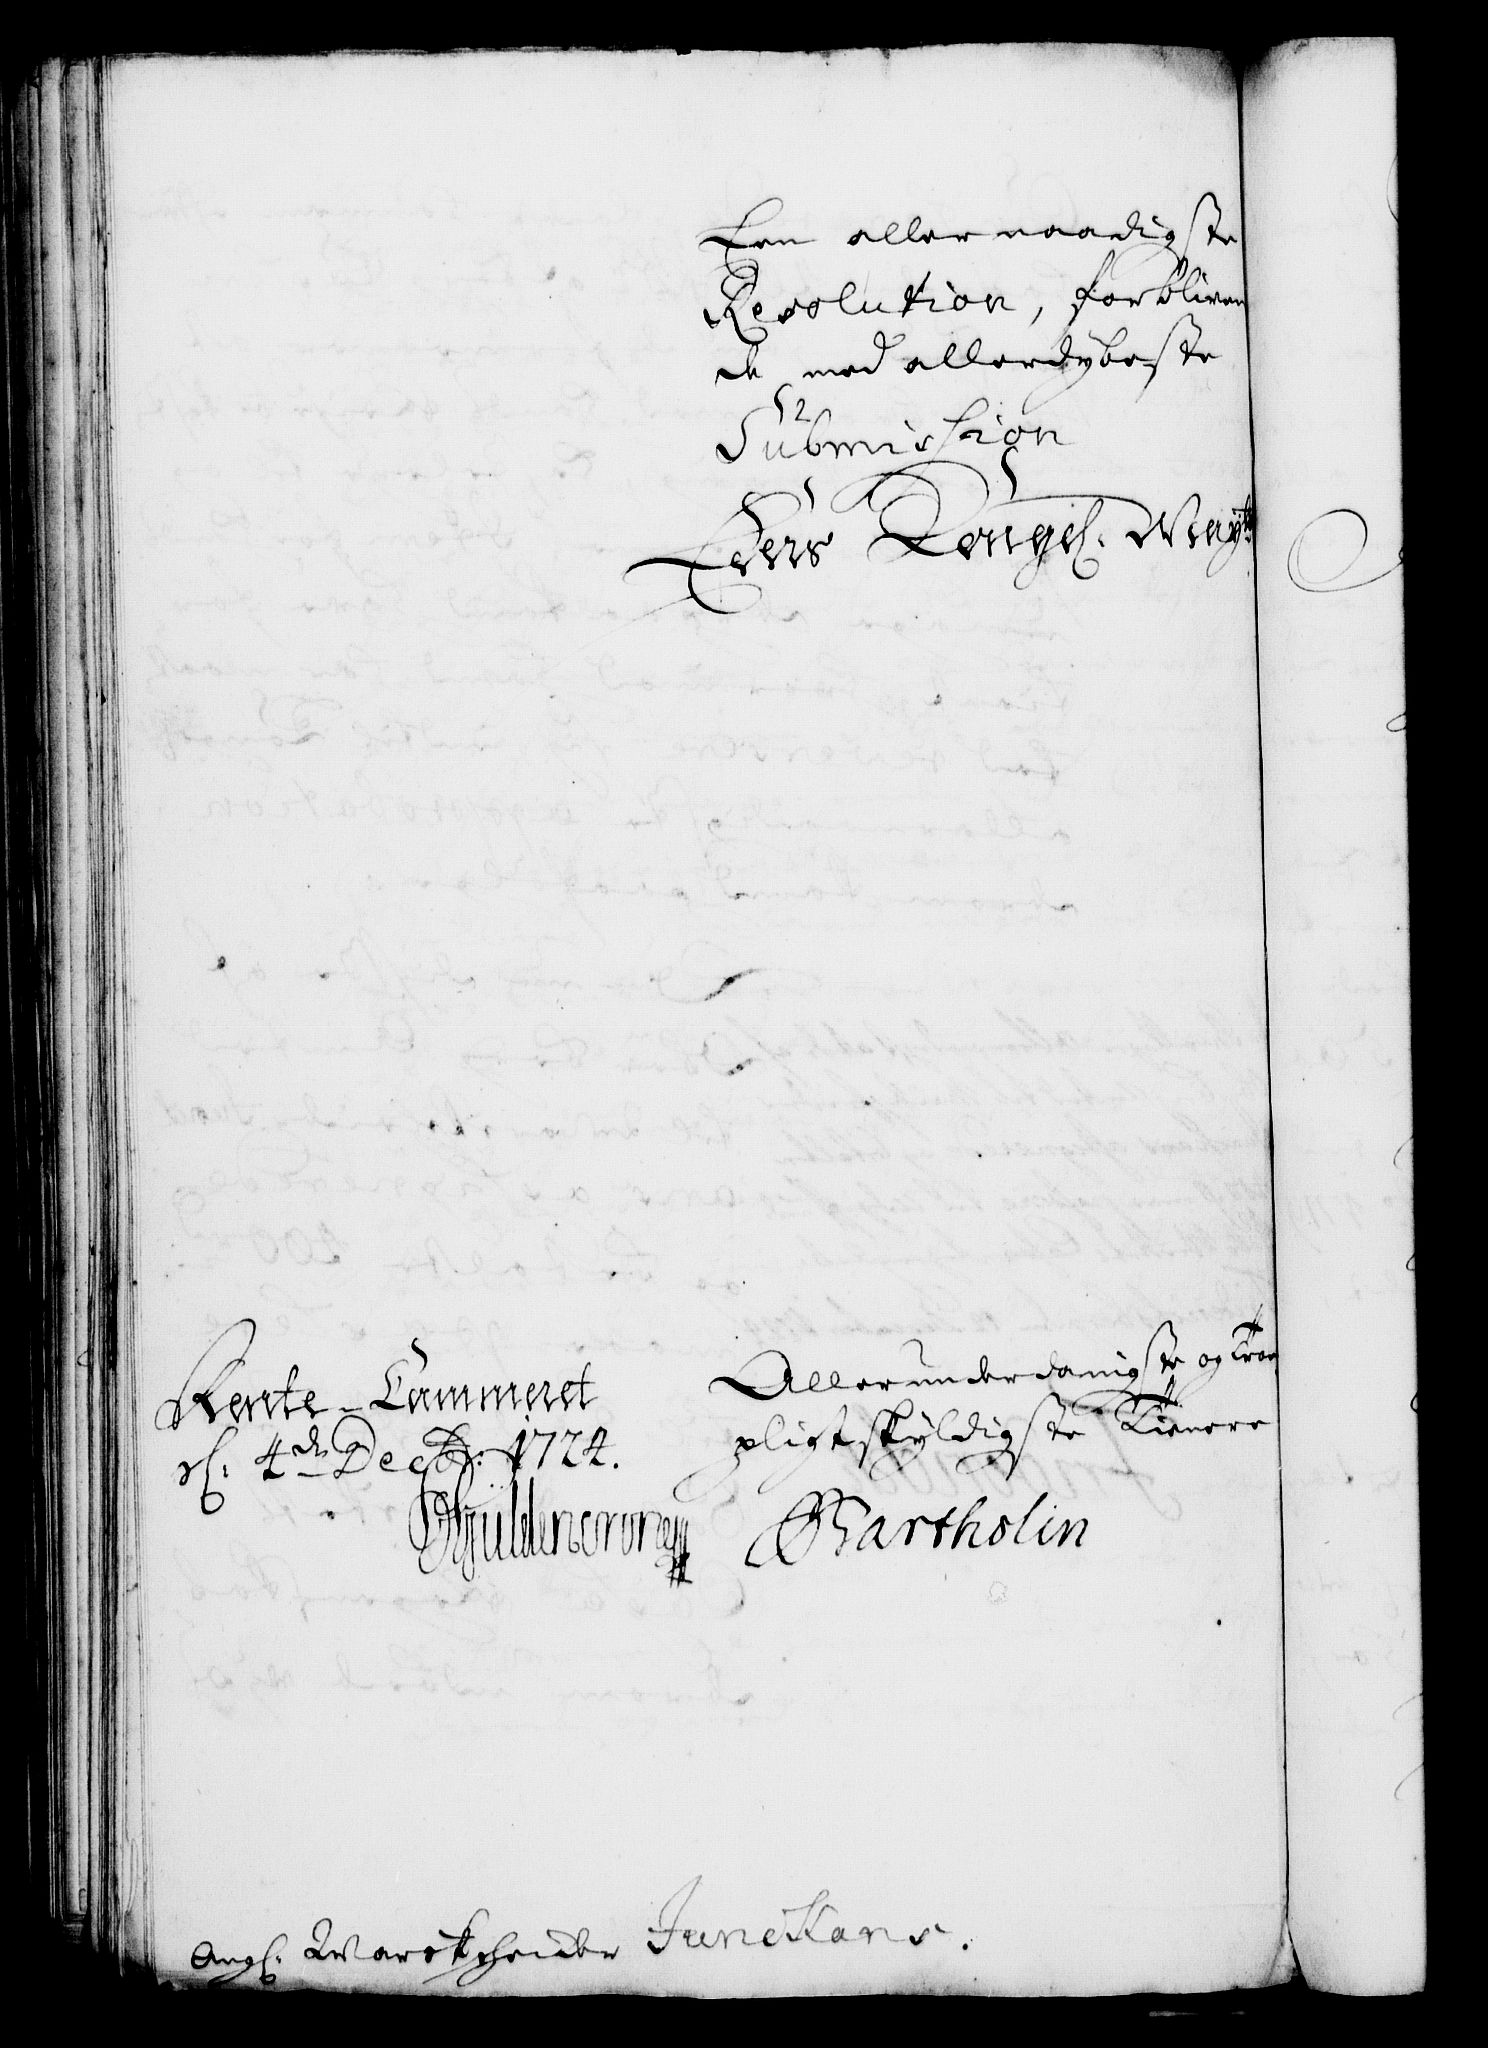 Een allernaadigste
Resolution, forbliven
de med allerdybeste
Submission
Eders Kongel. Mayts
Rente-Cammeret
d. 4de Decbr: 1724.
Allerunderdanigste og troe
pligtskyldigste tienere
Güldencrone
CBartholin
Ang. Marckscheider Junckans.